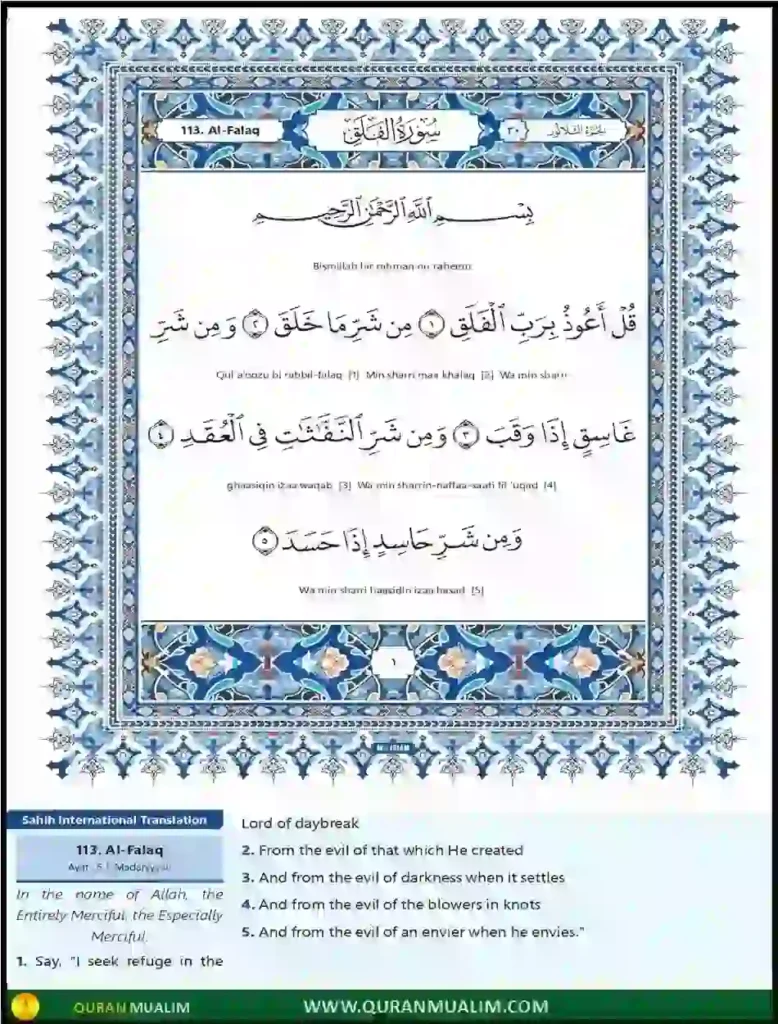 113. Al-Falaq
سُورَةُ الْفَلَقِ
٣٠
بِسْمِ اللَّهِ الرَّحْمَٰنِ الرَّحِيمِ
Bismillah hir rahman nir raheem
قُلْ أَعُوذُ بِرَبِّ ٱلْفَلَقِ ١ مِن شَرِّ مَا خَلَقَ ٢ وَمِن شَرِّ
Qul a'oozu bi rabbil-falaq [1] Min sharri maa khalaq [2] Wa min sharri
غَاسِقٍ إِذَا وَقَبَ ٣ وَمِن شَرِّ ٱلنَّفَّٰثَٰتِ فِى ٱلْعُقَدِ ٤
ghaasiqin izaa waqab [3] Wa min sharrin-naffaa-saati fil 'uqad [4]
وَمِن شَرِّ حَاسِدٍ إِذَا حَسَدَ ٥
Wa min sharri haasidin izaa hasad [5]
١
Sahih International Translation
113. Al-Falaq
In the name of Allah, the
Entirely Merciful, the Especially
Merciful.
1. Say, "I seek refuge in the
Lord of daybreak
2. From the evil of that which He created
3. And from the evil of darkness when it settles
4. And from the evil of the blowers in knots
5. And from the evil of an envier when he envies."
QURAN MUALIM
WWW.QURANMUALIM.COM